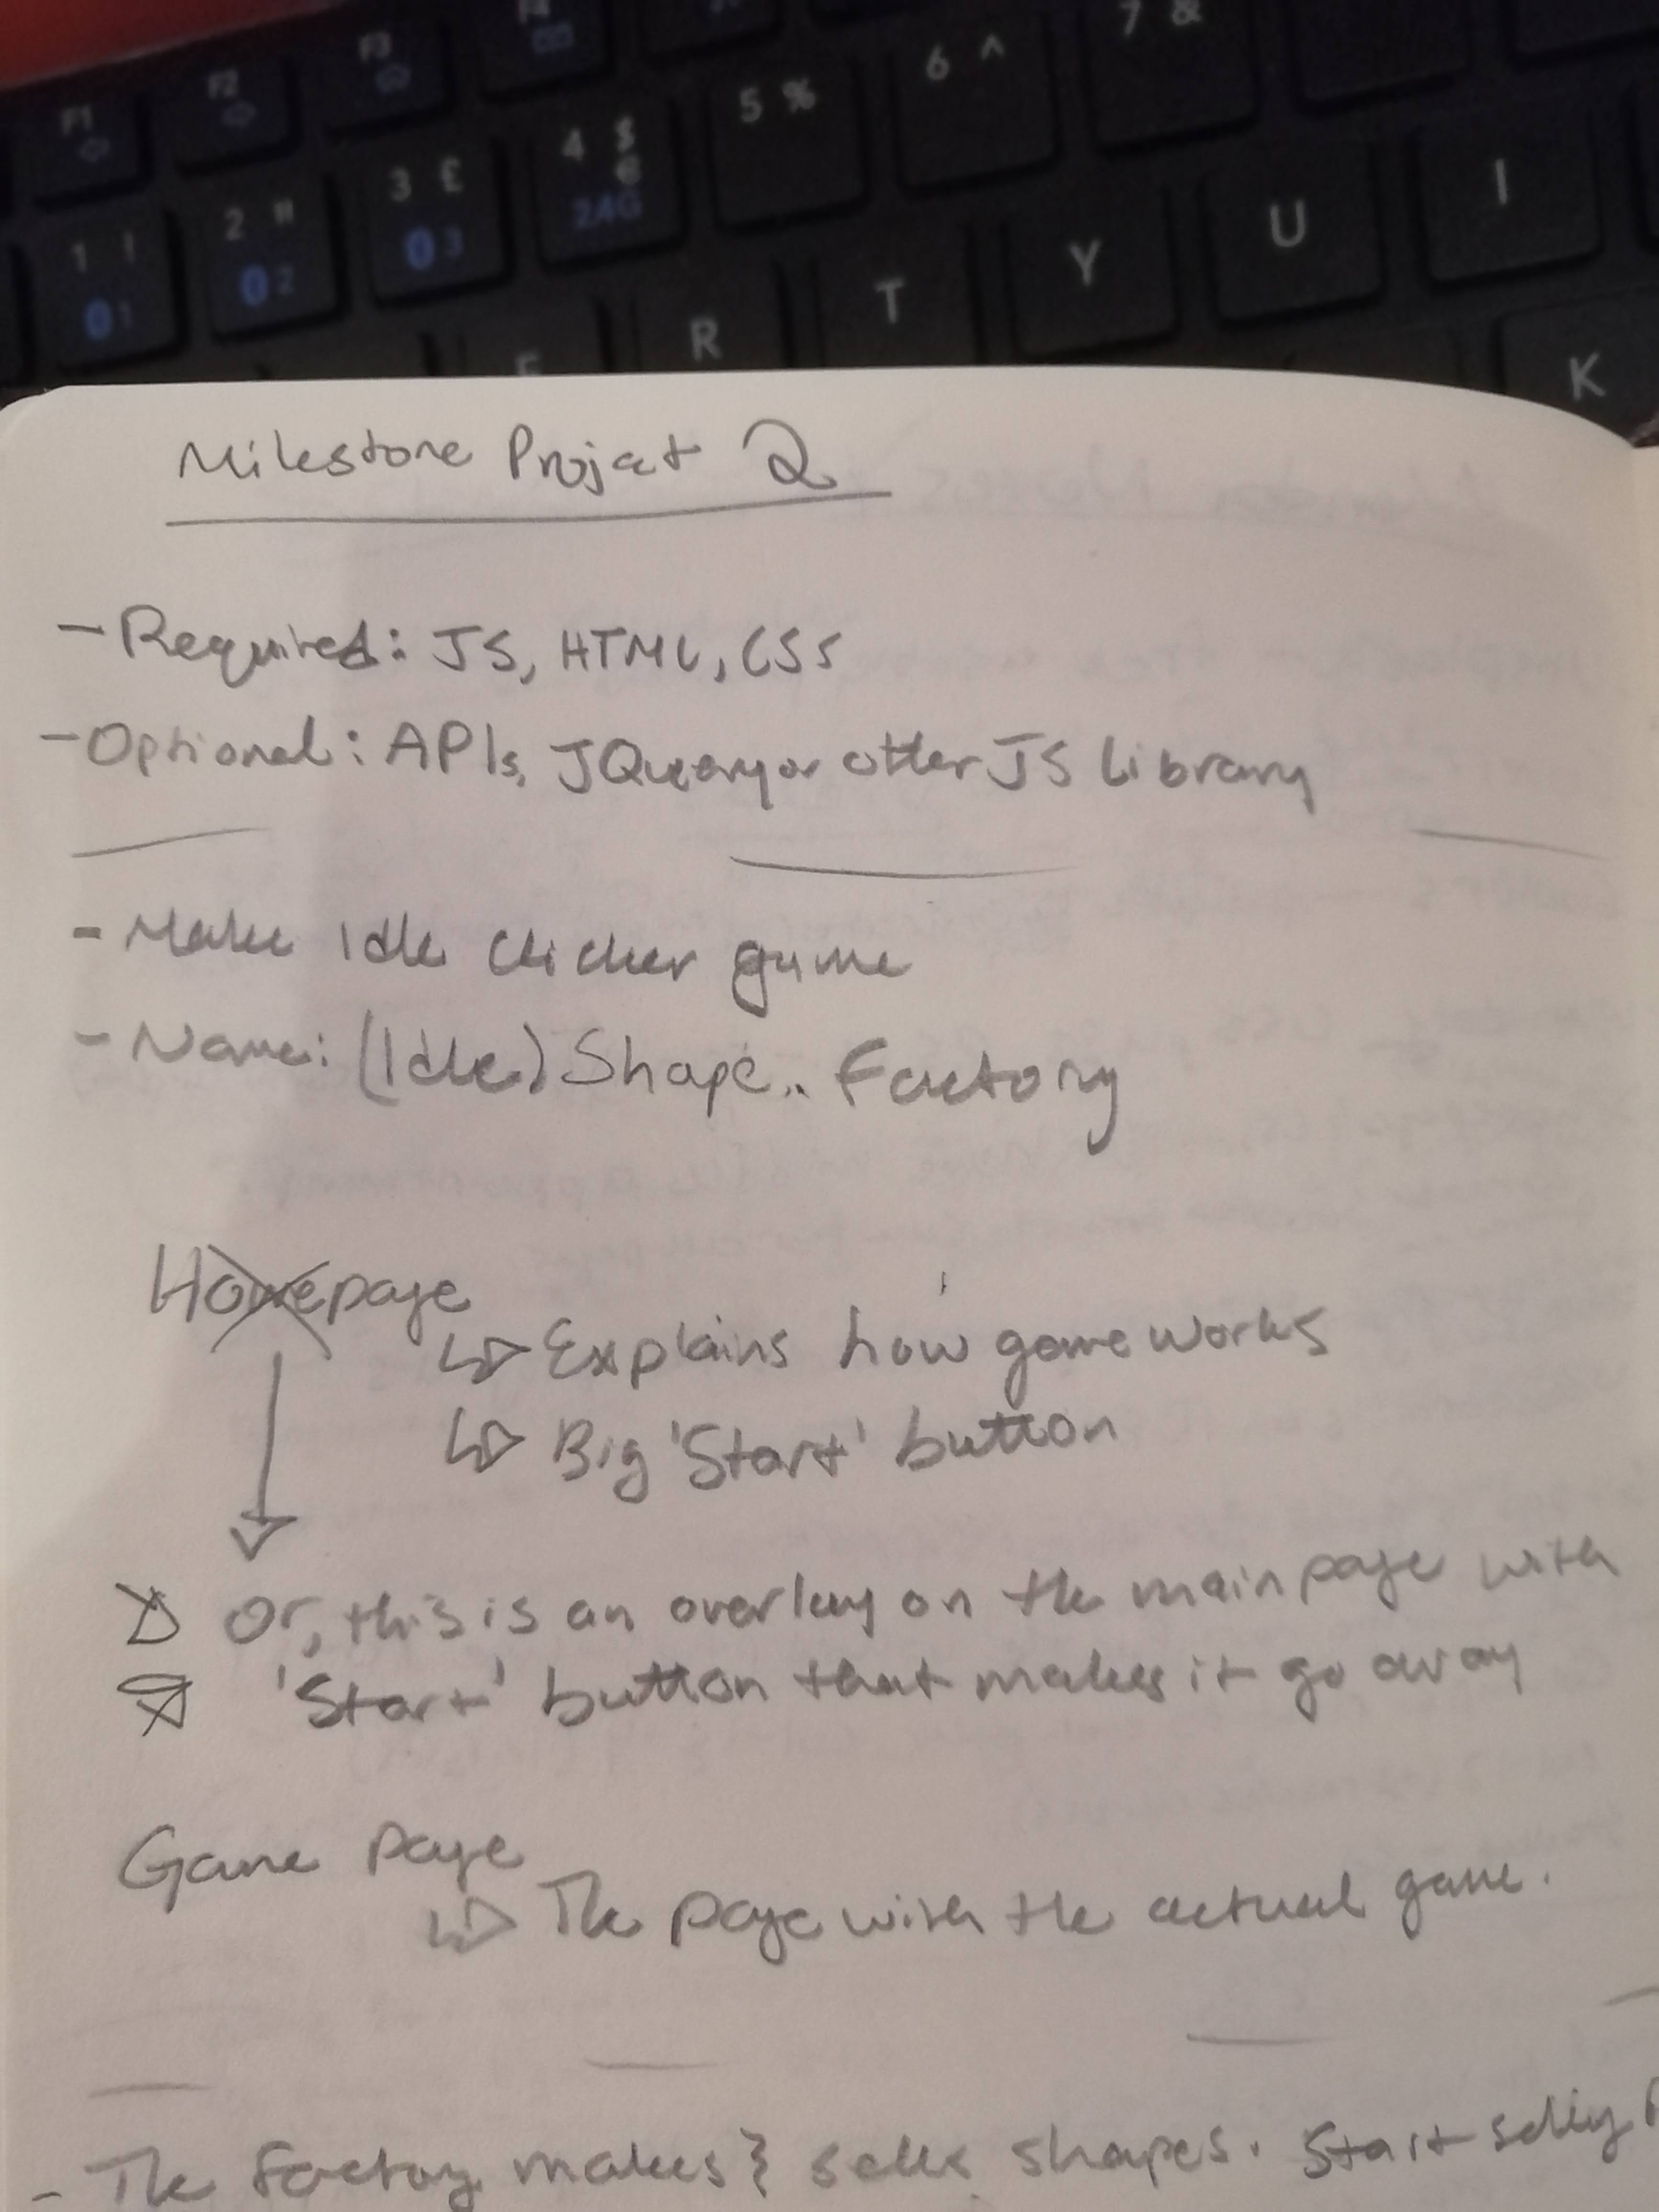 F1 F2 F3 F4
1 ! 2 " 3 £ 4 $ € 5 % 6 ^ 7 &
1 2 3 2.4G
E R T Y U I
K
Milestone Project 2
- Required: JS, HTML, CSS
- Optional: APIs, JQuery or other JS library
- Make idle clicker game
- Name: (Idle) Shape.. Factory
Homepage
Explains how game works
Big 'Start' button
Or, this is an overlay on the main page with
'Start' button that makes it go away
Game page
The page with the actual game.
- The factory makes & sells shapes. Start selling